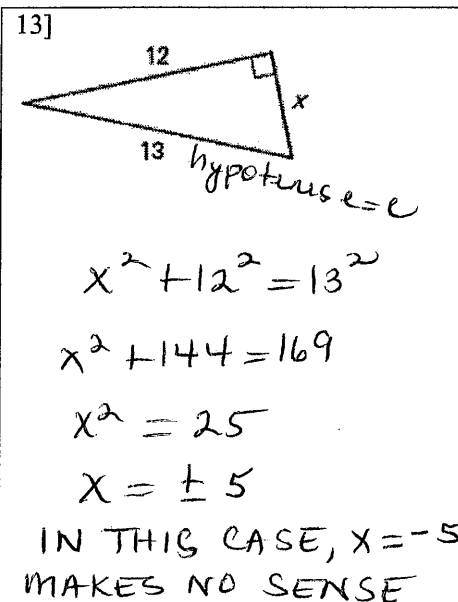 13]
12
x
13 hypotenuse=c
x² +12² = 13²
x² +144 = 169
x² = 25
x = ± 5
IN THIS CASE, x = -5
MAKES NO SENSE